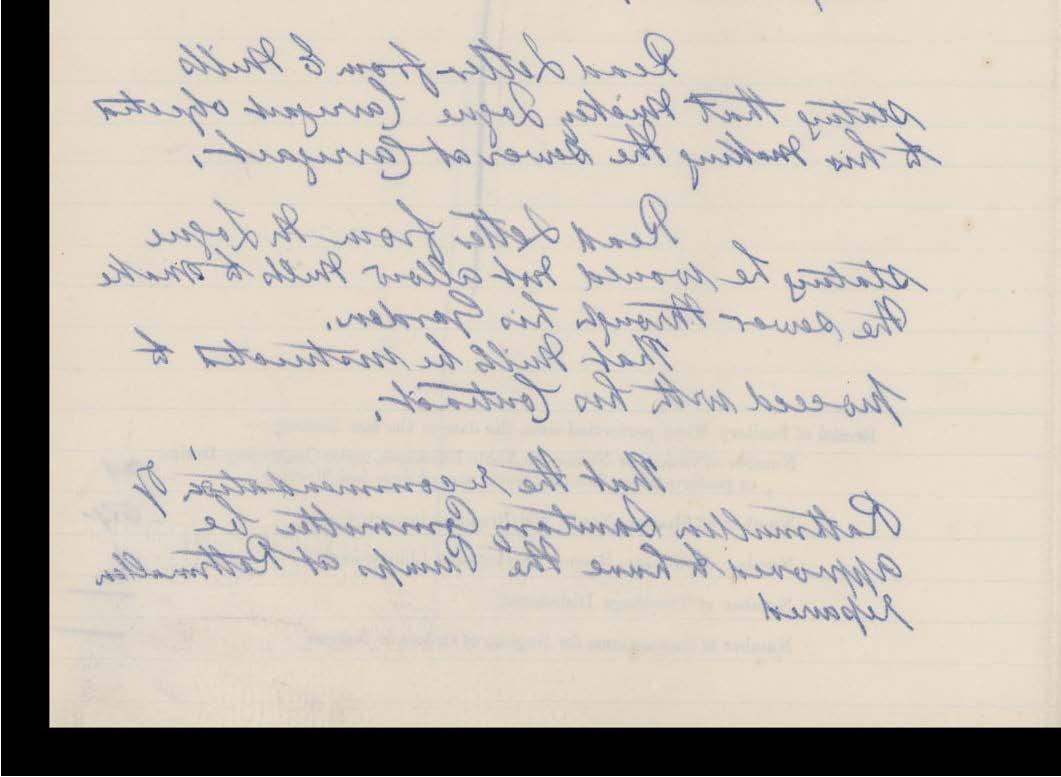 Read Letter from E Mills
stating that Micky Logue Carrigart objected
to his making the sewer at Carrigart.
Read Letter from M Logue
stating he would not allow Mills to make
the sewer through his Garden.
That Mills be instructed to
proceed with his Contract.
That the recommendation of
Rathmullen Sanitary Committee be
approved to have the Pumps at Rathmullen
repaired